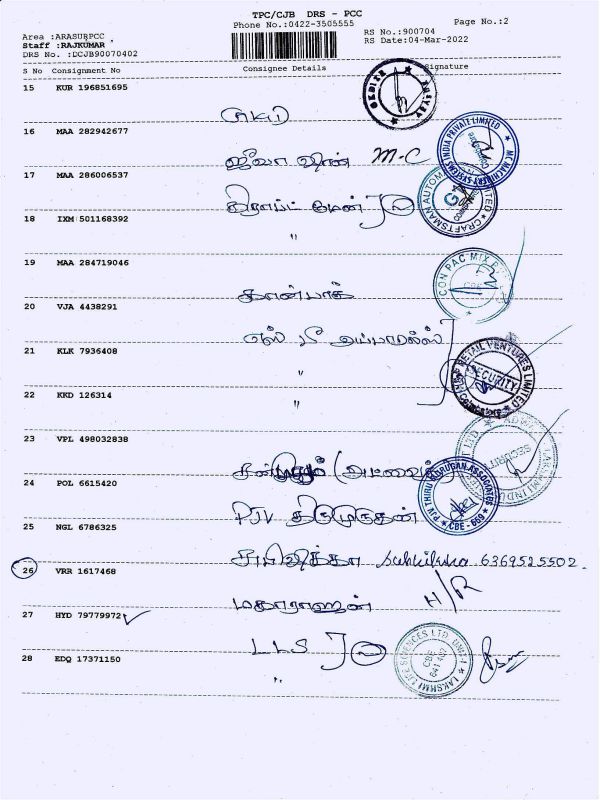 TPC/CJB DRS - PCC
Phone No.:0422-3505555
Page No.:2
Area :ARASURPCC
Staff :RAJKUMAR
DRS No. :DCJB90070402
RS No.:900704
RS Date:04-Mar-2022
S No Consignment No Consignee Details Signature
15 KUR 196851695
16 MAA 282942677
17 MAA 286006537
ஜீவா ஷான் M-C
MC MACHINERY SYSTEMS INDIA PRIVATE LIMITED
18 IXM 501168392
"
19 MAA 284719046
CON PAC MIX
கான்பாக்
20 VJA 4438291
21 KLK 7936408
"
RETAIL VENTURES LIMITED
SECURITY
22 KKD 126314
"
23 VPL 498032838
SECURITY
24 POL 6615420
PJV THIRU MURUGAN ASSOCIATES
CBE - 659
PJV திருமுருகன்
25 NGL 6786325
சுபிஷிக்கா Subhiksha 6369525502.
26 VRR 1617468
மகாராஜன் H/R
27 HYD 79779972
LLS
LAKSHMI LIFE SCIENCES LTD. UNIT-I
CBE
641 407
28 EDQ 17371150
"